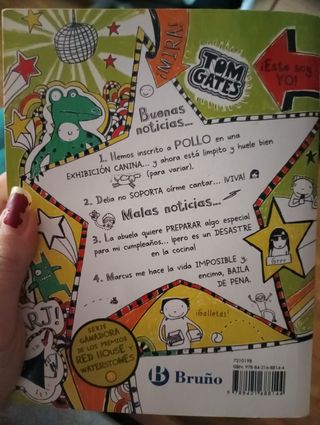 ¡MIRA!
TOM
GATES
¡Este soy
YO!
Buenas
noticias...
1. Hemos inscrito a POLLO en una
EXHIBICIÓN CANINA... y ahora está limpito y huele bien
(para variar).
2. Delia no SOPORTA oírme cantar... ¡VIVA!
Malas noticias...
3. La abuela quiere PREPARAR algo especial
para mi cumpleaños... ¡pero es un DESASTRE
en la cocina!
4. Marcus me hace la vida IMPOSIBLE y,
encima, BAILA
DE PENA.
Grrr
¡Galletas!
SERIE
GANADORA
DE LOS PREMIOS
RED HOUSE Y
WATERSTONES
B Bruño
7210198
ISBN: 978-84-216-8814-4
9788421688144